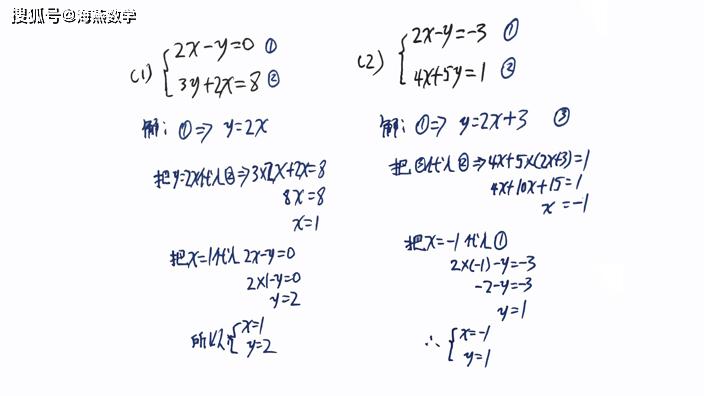 搜狐号@海燕数学
(1) {2x-y=0 ①
3y+2x=8 ②
解: ①⇒ y=2x
把y=2x代入②⇒3×2x+2x=8
8x=8
x=1
把x=1代入2x-y=0
2×1-y=0
y=2
所以{x=1
y=2
(2) {2x-y=-3 ①
4x+5y=1 ②
解: ①⇒ y=2x+3 ③
把③代入②⇒4x+5×(2x+3)=1
4x+10x+15=1
x=-1
把x=-1代入①
2×(-1)-y=-3
-2-y=-3
y=1
∴ {x=-1
y=1